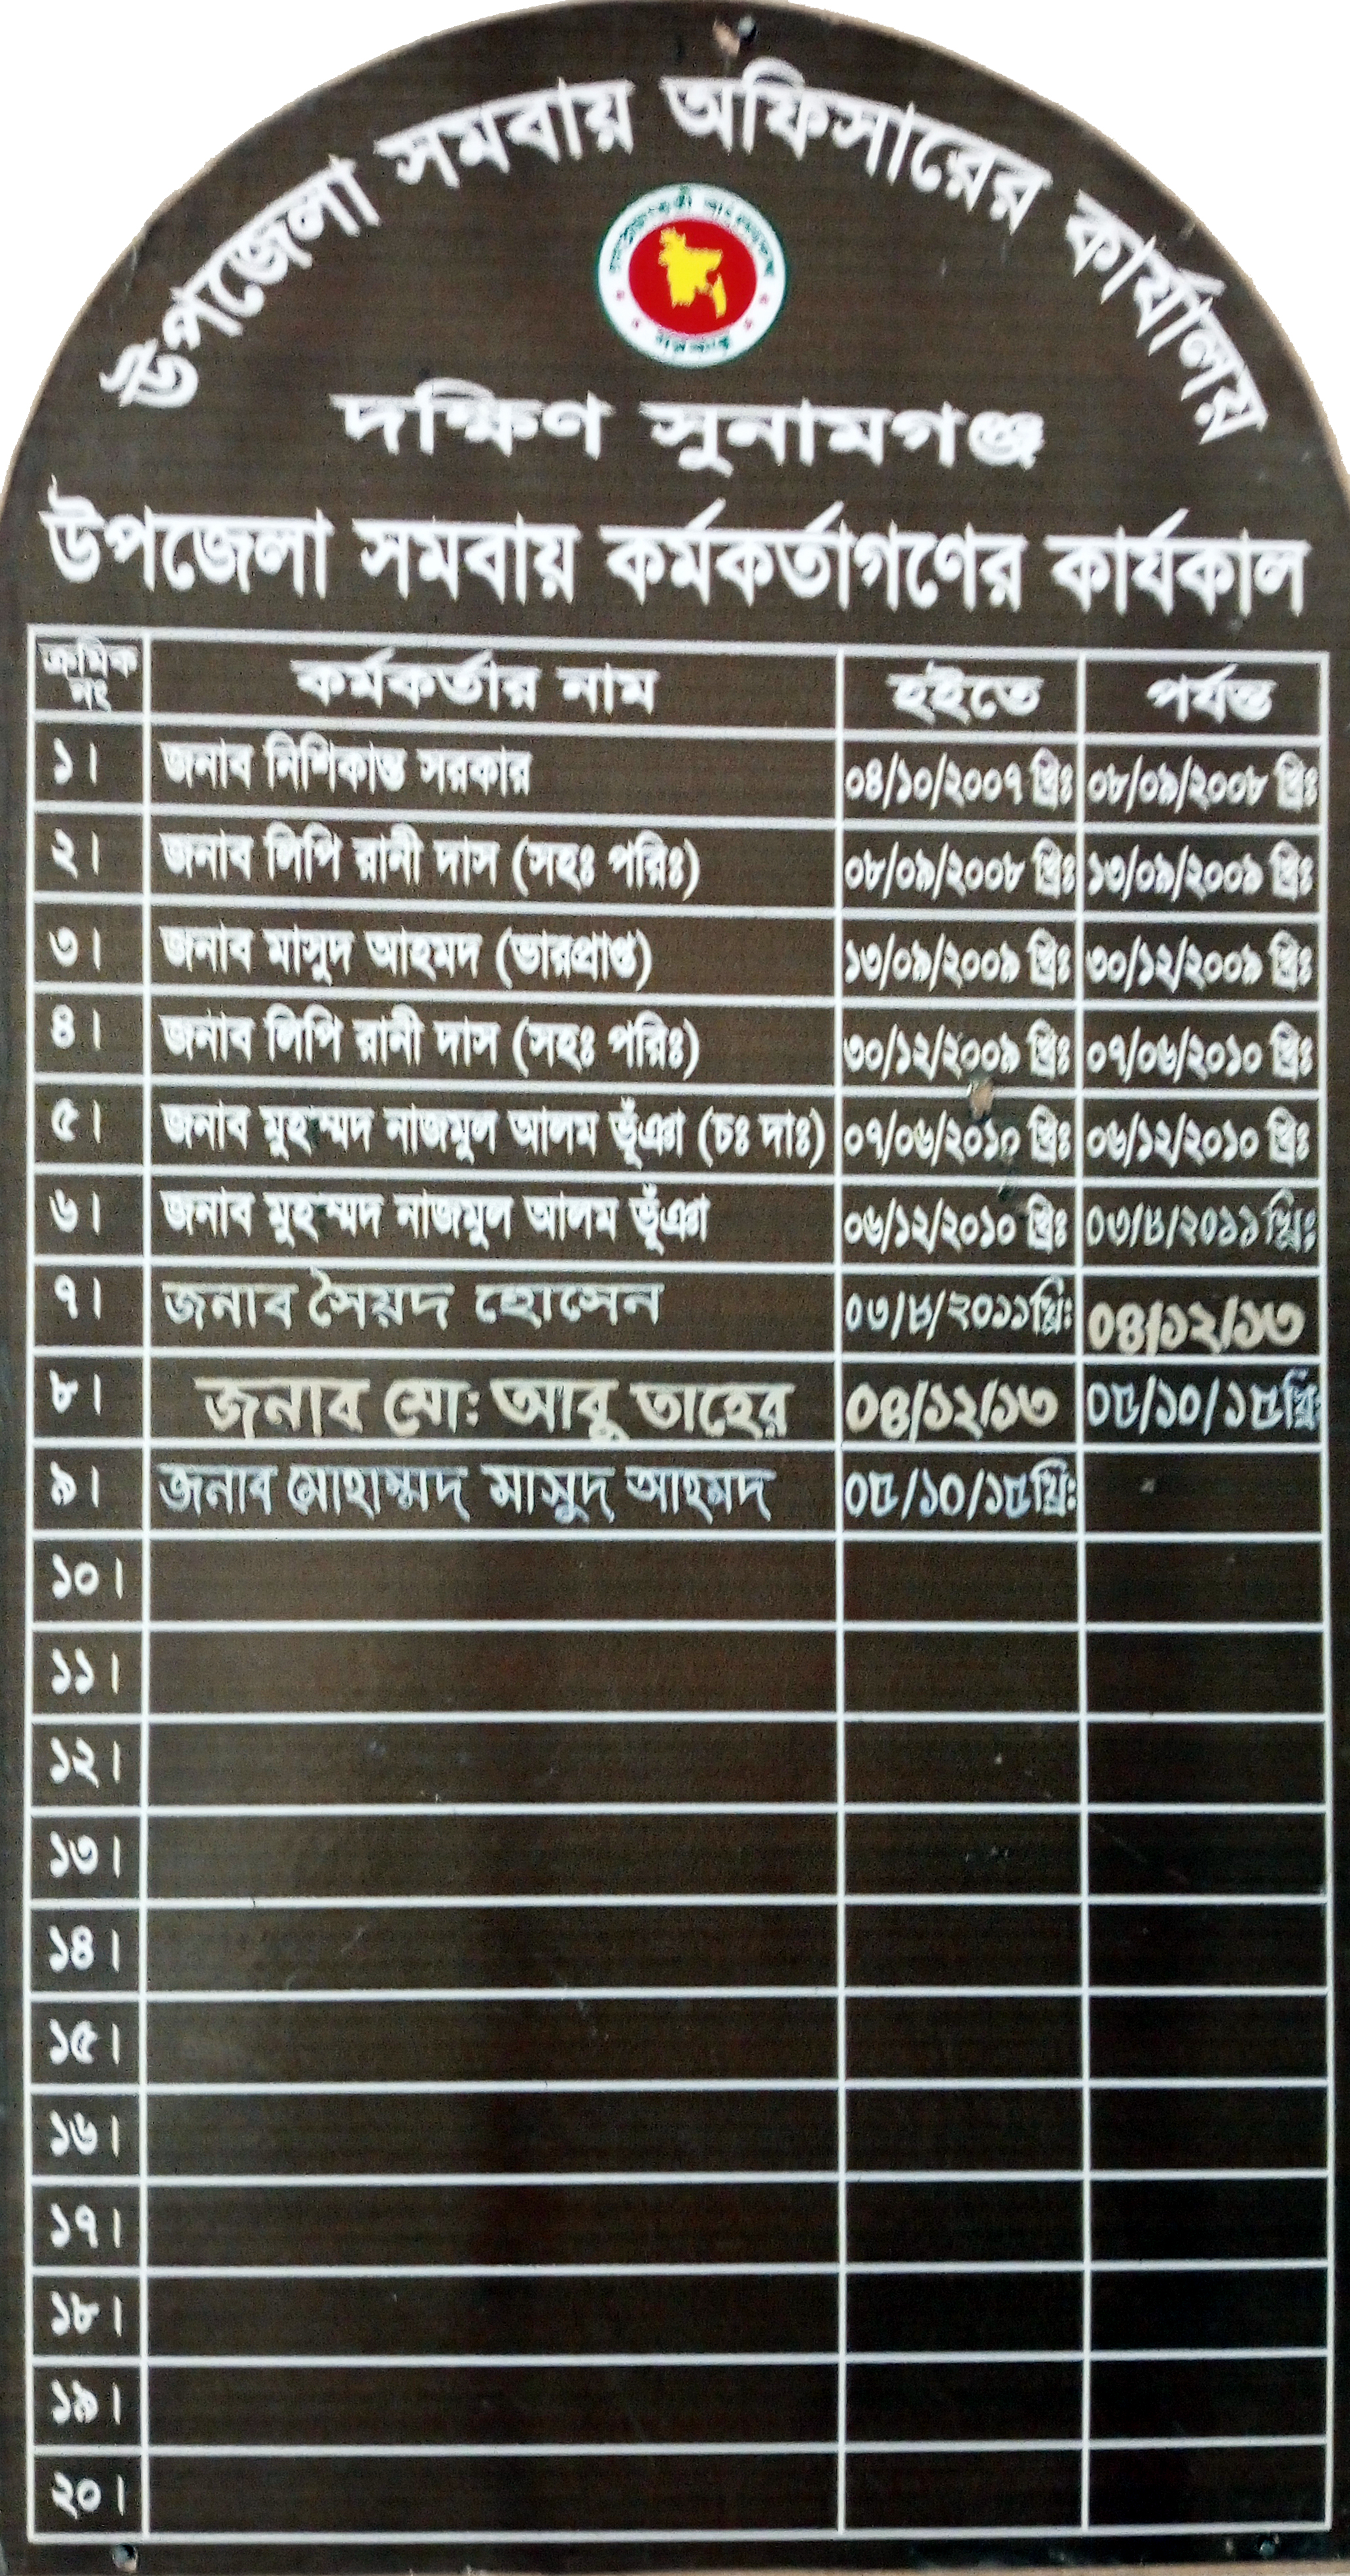 উপজেলা সমবায় অফিসারের কার্যালয়
দক্ষিণ সুনামগঞ্জ
উপজেলা সমবায় কর্মকর্তাগণের কার্যকাল
ক্রমিক নং কর্মকর্তার নাম হইতে পর্যন্ত
১। জনাব নিশিকান্ত সরকার ০৪/১০/২০০৭ খ্রিঃ ০৮/০৯/২০০৮ খ্রিঃ
২। জনাব লিপি রানী দাস (সহঃ পরিঃ) ০৮/০৯/২০০৮ খ্রিঃ ১৩/০৯/২০০৯ খ্রিঃ
৩। জনাব মাসুদ আহমদ (ভারপ্রাপ্ত) ১৩/০৯/২০০৯ খ্রিঃ ৩০/১২/২০০৯ খ্রিঃ
৪। জনাব লিপি রানী দাস (সহঃ পরিঃ) ৩০/১২/২০০৯ খ্রিঃ ০৭/০৬/২০১০ খ্রিঃ
৫। জনাব মুহম্মদ নাজমুল আলম ভূঁঞা (চঃ দাঃ) ০৭/০৬/২০১০ খ্রিঃ ০৬/১২/২০১০ খ্রিঃ
৬। জনাব মুহম্মদ নাজমুল আলম ভূঁঞা ০৬/১২/২০১০ খ্রিঃ ০৩/৮/২০১১খ্রিঃ
৭। জনাব সৈয়দ হোসেন ০৩/৮/২০১১খ্রিঃ ০৪/১২/১৩
৮। জনাব মো: আবু তাহের ০৪/১২/১৩ ০৫/১০/১৫খ্রিঃ
৯। জনাব মোহাম্মদ মাসুদ আহমদ ০৫/১০/১৫খ্রিঃ
১০।
১১।
১২।
১৩।
১৪।
১৫।
১৬।
১৭।
১৮।
১৯।
২০।